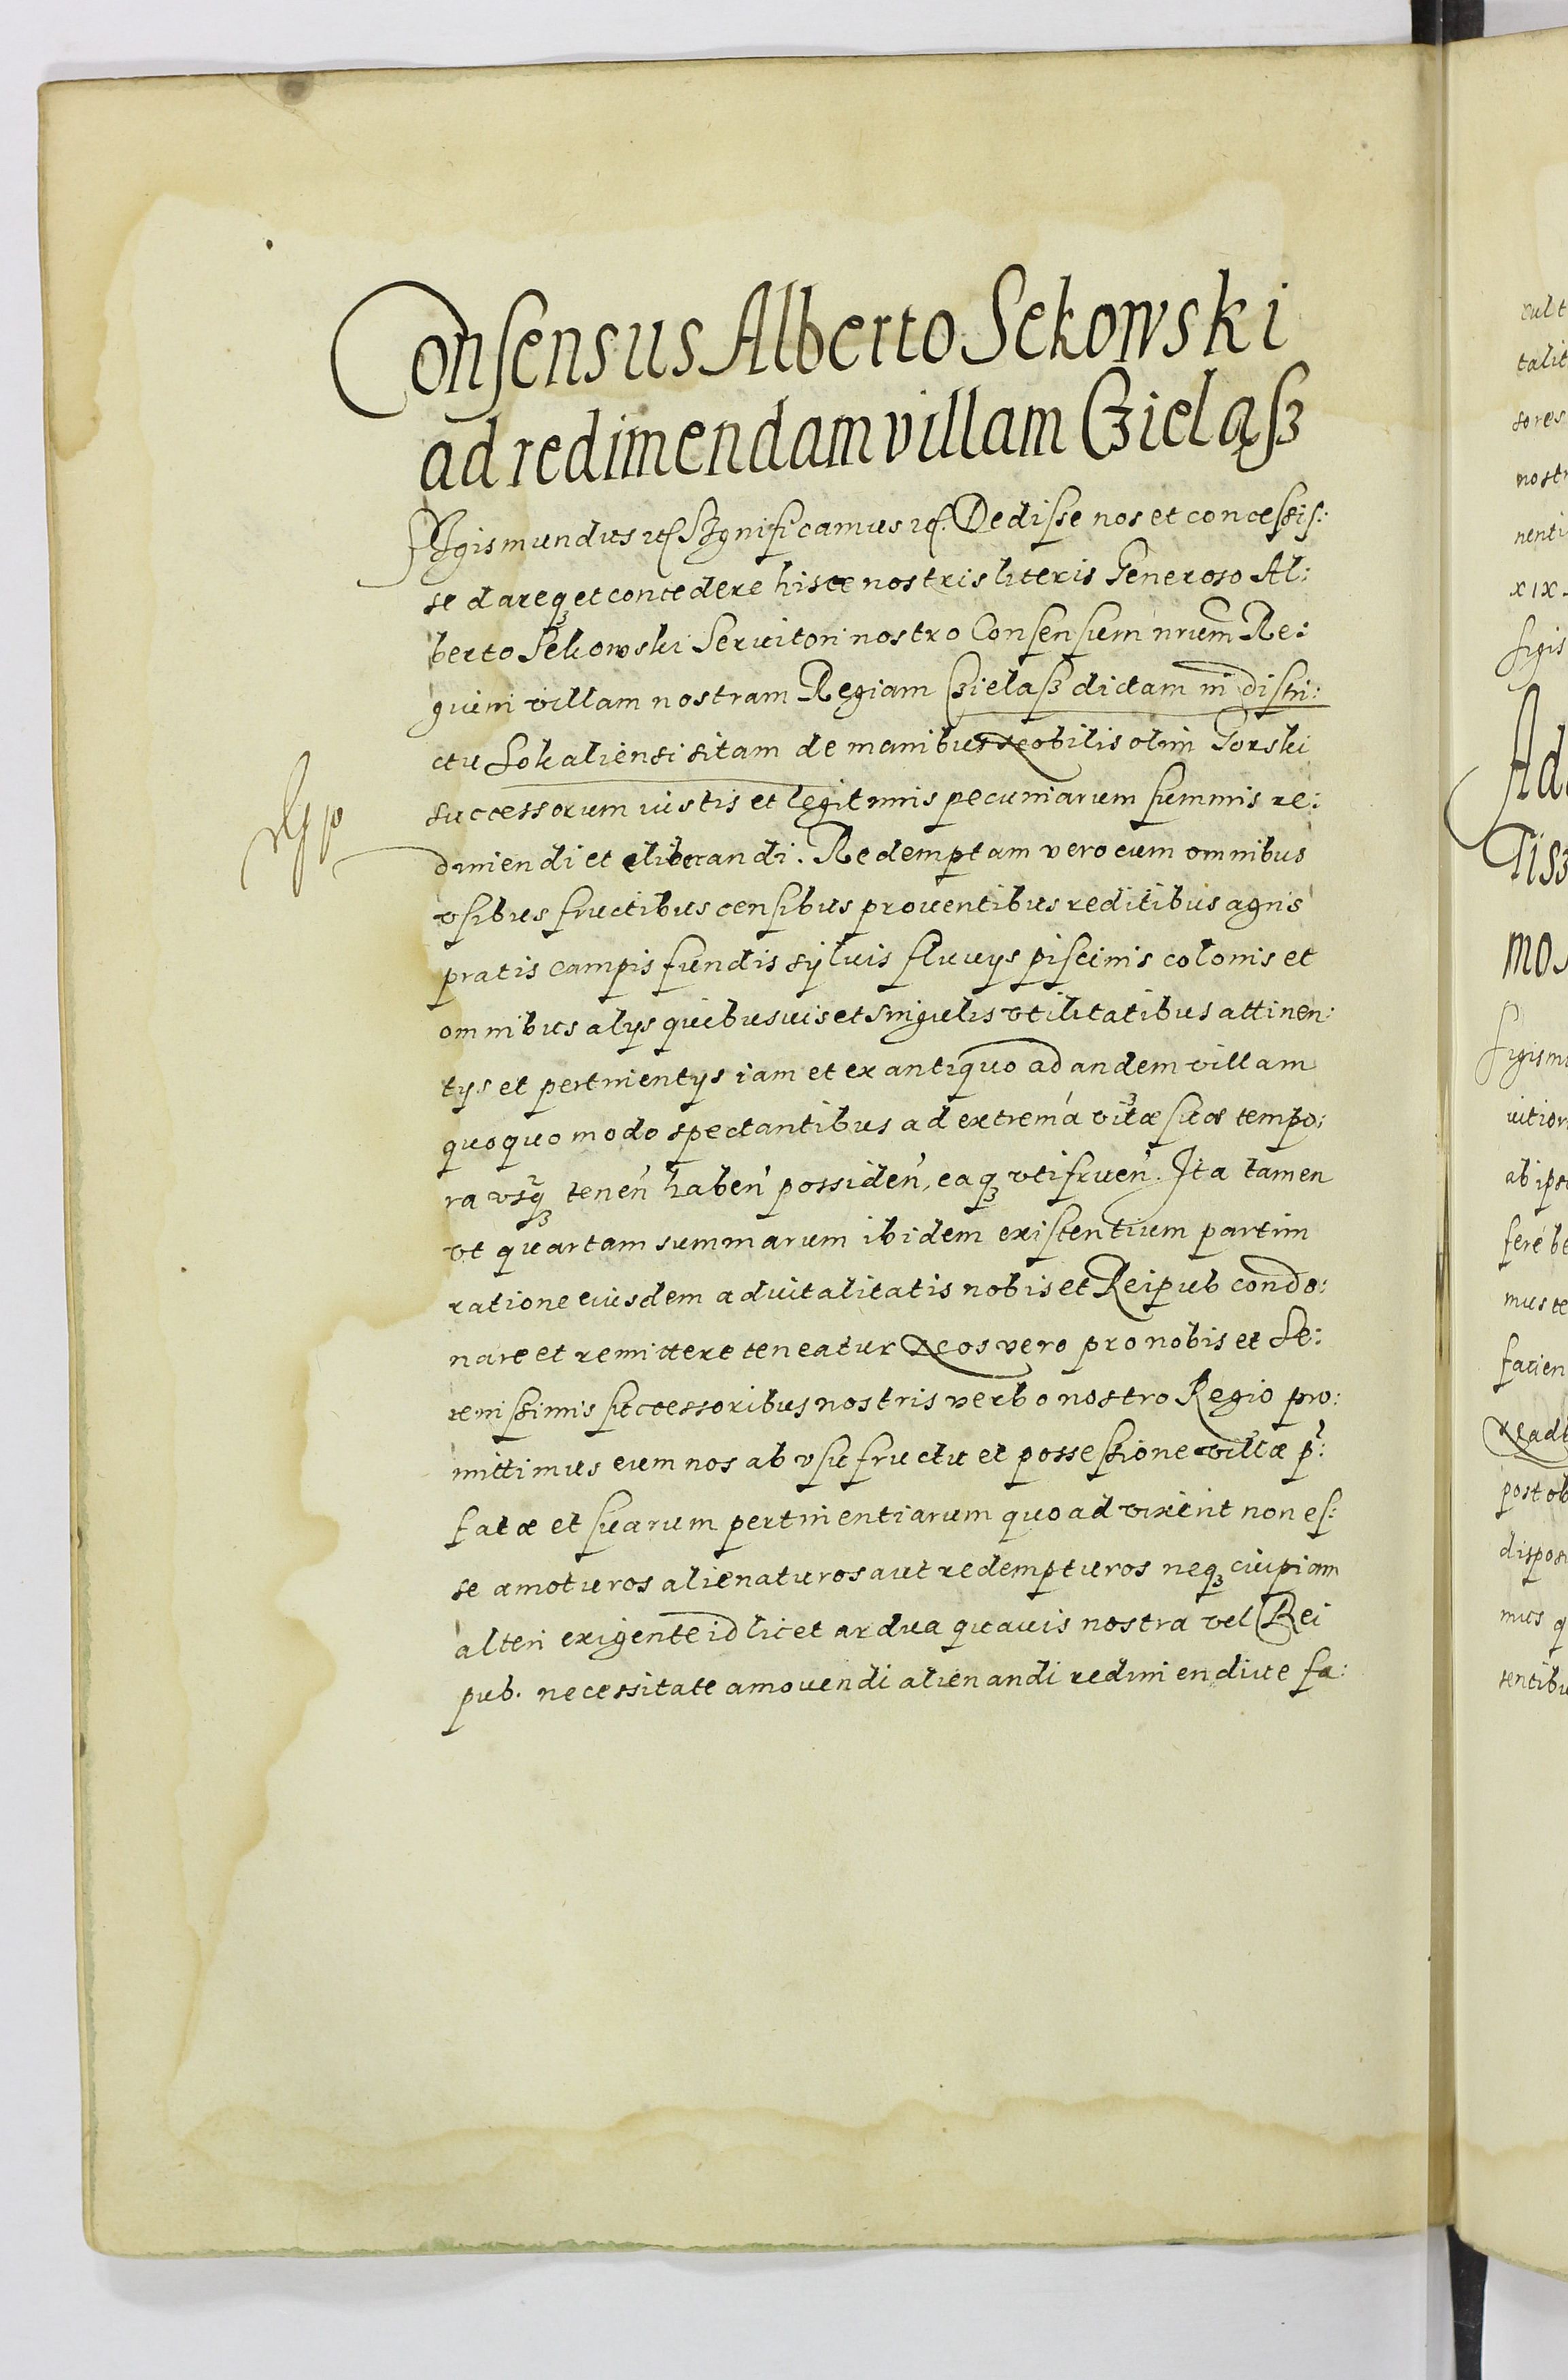 Consensus Alberto Sekowski
ad redimendam villam Czieląß
Sigismundus etc Significamus etc. Dedisse nos et concessis:
se dareq3 et concedere hisce nostris literis Generoso Al:
berto Sekowski Seruitori nostro Consensum nrum Re:
guim villam nostram Regiam Czielaß dictam in distri:
ctu Sokaliensi sitam de manibus Nobilis olim Gorski
successorum iustis et legitimis pecuniarum summis re:
dimiendi et eliberandi. Redemptam vero cum omnibus
vsibus fructibus censibus prouentibus reditibus agris
pratis campis fundis syluis fluuijs piscinis colonis et
omnibus alijs quibusuis et singulis vtilitatibus attinen:
tijs et pertinentijs iam et ex antiquo ad andem villam
quoquomodo spectantibus ad extrema vitæ suæ tempo:
ra vsq3 tenen haben possiden, eaq3 vtifruen. Ita tamen
vt quartam summarum ibidem existentium partim
ratione eiusdem aduitalitatis nobis et Reipub condo:
nare et remittere teneatur Nos vero pro nobis et Se:
renissimis successoribus nostris verbo nostro Regio pro:
mittimus eum nos ab vsufructu et possessione villæ p:
fatæ et suarum pertinentiarum quoad vixerit non es:
se amoturos alienaturos aut redempturos neq3 cuipiam
alteri exigente id licet ardua quauis nostra vel Rei
pub. necessitate amouendi alienandi redimiendiue fa: